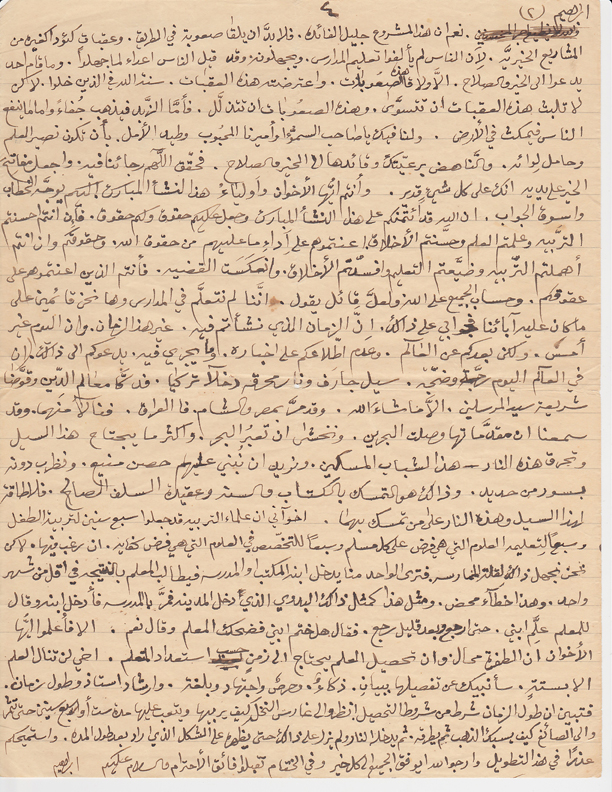 ٤
ابراهيم (٢)
نعم ان هذا المشروع جليل الفائدة. فلا بد ان يلقا صعوبة في الطريق. وعقبات كئود اكغيره من
المشاريع الخيريّة. لان الناس لم يألفوا تعليم المدارس. ويجهلونه وقد قيل الناس اعداء لما جهلوا. وما قام احد
يدعوا الى الخير والصلاح. الّا ولاقا هذه الصعوبات. واعترضته هذه العقبات. سنة الله في الذين خلوا. لاكن
لا تلبث هذه العقبات ان تتسوّى. وهذه الصعوبات ان تتذلّل. فأمّا الزبد فيذهب جُفاءً واما ما ينفع
الناس فيمكث في الأرض. ولنا فيك يا صاحب السموّ وأميرنا المحبوب وطيد الأمل. بأن تكون نصير العلم
وحامل لوائه. والناهض برعيّتك وقائدها الى الخير والصلاح. فحقق اللّهم رجائنا فيه. واجعل
الخير على يديه انك على كل شيء قدير. وأنتم ايّها الأخوان وأولياءُ هذا النشأ المبارك اليكم يوجّه الخطاب
واسوق الجواب. ان الله قد ائتمنكم على هذا النشأ المبارك وجعل عليكم حقوق ولهم حقوق. فإن أنتم احسنتم
التربيه وعلّمتم العلم وحسّنتم الأخلاق اعنتموهم على إداءِ ما عليهم من حقوق الله وحقوقكم وان انتم
أهملتم التربيه وضيّعتم التعليم وافسدتم الأخلاق. وانعكست القضيه. فأنتم الذين اعنتموهم على
عقوقكم. وحساب الجميع على الله ولعلّ قائل يقول. انّنا لم نتعلّم في المدارس وها نحن قائمين على
ما كان عليه آبائنا فجوابي على ذالك. انّ الزمان الذي نشأتم فيه. غير هذا الزمان. وان اليوم غير
أمس. ولكن بعدكم عن العالم. وعدم اطّلاعكم على اخباره. وما يجري فيه. يدعوكم الى ذالك. ان
في العالم اليوم وضجّه. سيل جارف ونار محرقه دخلا تركيا. فدسّا معالم الدّين وقوّضا
شريعة سيد المرسلين. الّا ما شاء الله. وقد مسّ بمصر والشام. فالعراق. فنالا منهما. وقد
سمعنا ان مقدّماتها وصلت البحرين. ونخشى ان تعبر البحر. واكثر ما يجتاح هذا السيل
وتحرق هذه النار - هذا الشباب المسلمين. ونريد ان نُبني عليهم حصن منيع. ونضرب دونه
بسور من حديد. وذالك هو التمسك بالكتاب والسنه وعقيدة السلف الصالح. فلا طاقة
لهذا السيل وهذه النار على من تمسك بهما. اخواني ان علماء التربيه قد جعلوا سبع سنين لتربية الطفل
وسبعاً لتعليمه العلوم التي هي فرض على كل مسلم وسبعاً للتخصّص في العلوم التي هي فرض كفايه. ان رغب فيها. لاكن
نحن نجهل ذالك لقلة الممارسه فترى الواحد منا يدخل ابنه المكتب او المدرسه فيطالب المعلم بالنتيجه في اقل من شهر
واحد. وهذا خطآء محض. ومثل هذا كمثل ذاك البدوي الذي أدخل المدينه فمرّ بالمدرسه فأدخل ابنه وقال
للمعلم علّم إبني. حتى ارجع وبعد قليل رجع. فقال هل ختم ابني فضحك المعلم وقال نعم. الا فأعلموا ايّها
الأخوان ان الطفره محال وان تحصيل العلم يحتاج الى زمن استعداد المتعلم. اخي لن تنال العلم
الا بستةٍ. سأنبيك عن تفصيلها ببيانِ. ذكاءٌ. وحرصٌ واجتهاد وبلغة. وارشاد استاذ وطول زمان.
فتبيّن ان طول الزمان شرط من شروط التحصيل. انظر الى غارس النخل كيف يربيها ويتعب عليها مدة ست أو سبع سنين حتى تثمر
والى الصائغ كيف يسبك الذهب ثم يطرقه. ثم يدخله النار ولم يزل على ذالك حتى يظهر على الشكل الذي اراد بعد طول المدة. واستميحكم
عذرًا في هذا التطويل وارجو الله ان يوفق الجميع الى كل خير وفي الختام تقبلوا فائق الأحترام والسلام عليكم ابراهيم